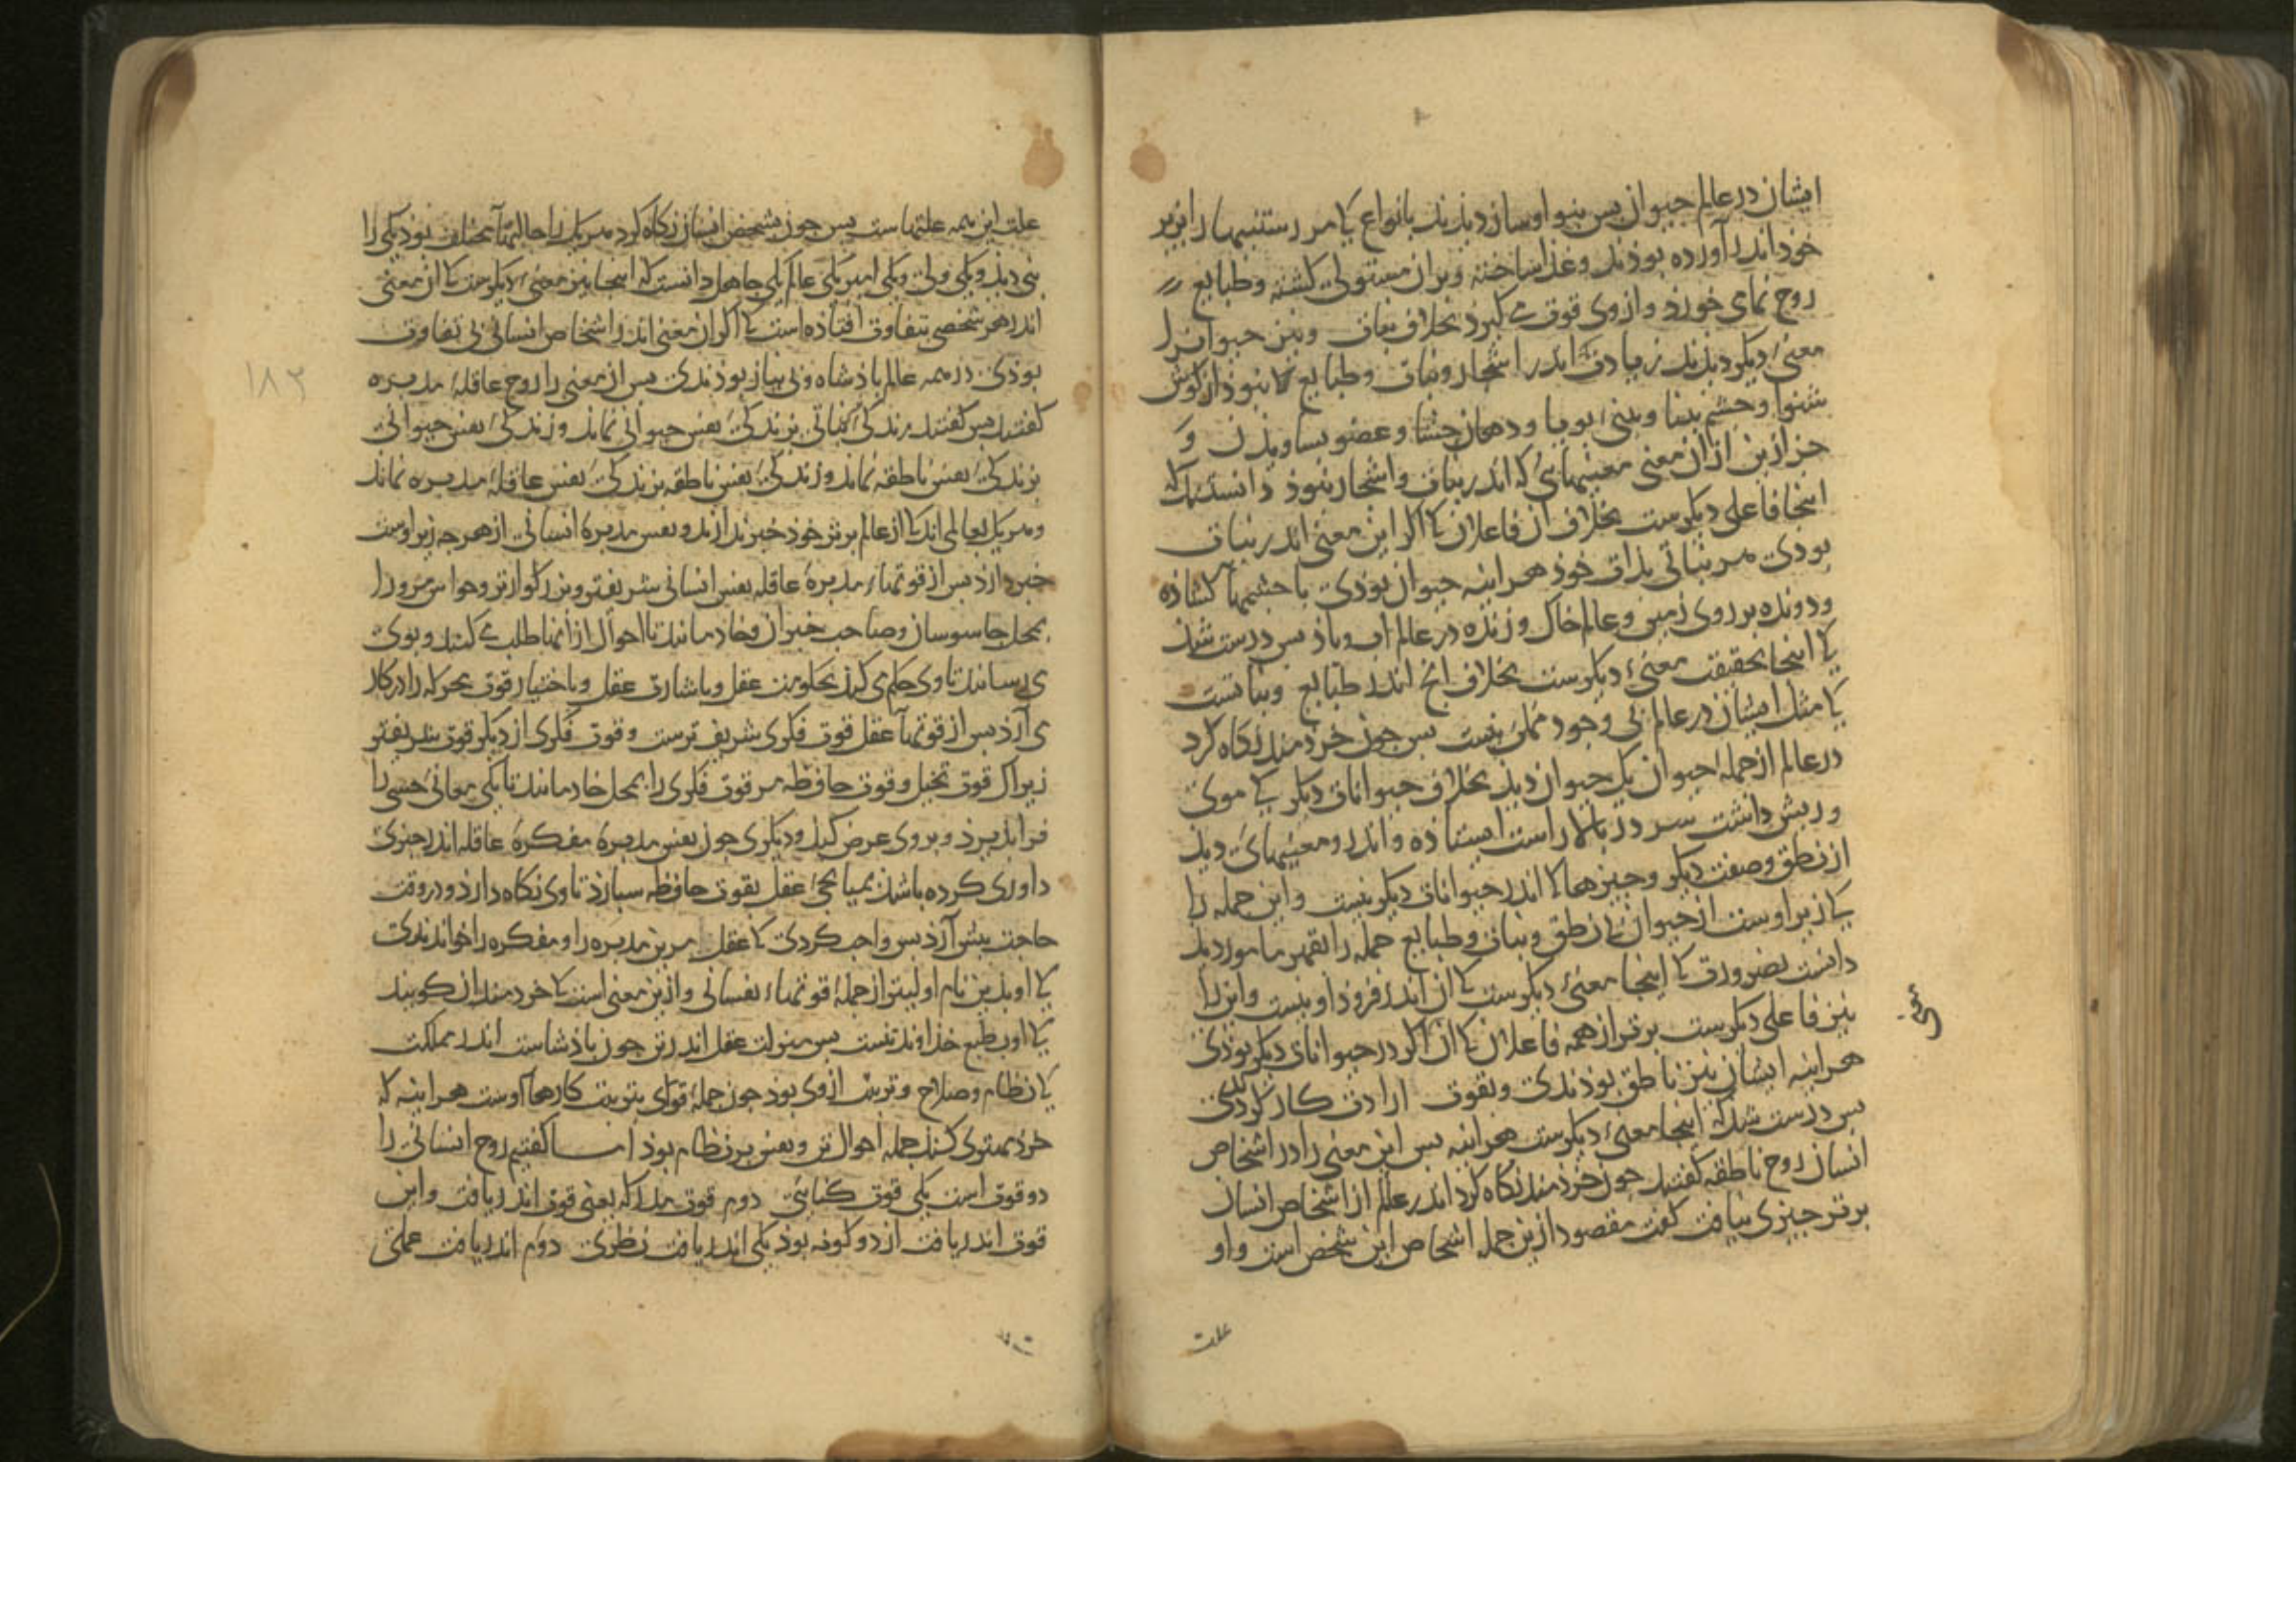 ایشان در عالم حیوان پس نیو اوسان دیدند بانواع کا مر رستنیها را نیز بر
خود اندر آورده بودند و غذا ساخته و بران مستولی کشته و طبایع
روح نمای خورد و از وی قوت می کیرد بخلاف نبات و نیز حیوانرا
معنیء دیکر دیدند زیادت کا اندر اشجار و نبات و طبایع کا نبود از کوش
شنوا و چشم بینا و بینیء بویا و دهان چشا و عضو بساو بدن و
جز ازین از ان معنی معنیهائی که اندر نبات و اشجار نبوذ دانستند که
اینجا فاعلی دیکرست بخلاف آن فاعلان کا اکر این معنی اندر نبات
بوذی هر نباتی بذات خود هراینه حیوان بوذی با چشمها کشاذه
و دونده بر روی زمین و عالم خاک و زنده در عالم اب و باذ پس درست شد
کا اینجا بحقیقت معنیء دیکرست بخلاف انج اندر طبایع و نباتست
کا مثل ایشان در عالم بی وجود ممکن نیست پس چون خردمند نکاه کرد
در عالم از جملهٔ حیوان یک حیوان دید بخلاف حیوانات دیکر بی موی
و ریش داشت سر در بالا راست ایستاذه و اندرو معنیهای دید
از نطق و صفت دیکر و چیزها کا اندر حیوانات دیکر نیست و این جمله را
کا زیر اوست از حیوان بی نطق و نبات و طبایع جمله را بقهر مامور دید
دانست بضرورت کا اینجا معنیء دیکرست کا ان اندر فروذ او نیست و این را
نیز فاعلی دیکرست برتر از همه فاعلان کا ان اکر در حیوانات دیکر بوذی
هراینه ایشان نیز ناطق بوذندی و بقوت ارادت کار کردندی
پس درست شد که اینجا معنیء دیکرست هراینه پس این معنی را در اشخاص
انسان روح ناطقه کفتند چون خردمند نکاه کرد اندر عالم از اشخاص انسان
برتر چیزی نیافت کفت مقصود ازین جمله اشخاص این شخص است و او
علت
علت این همه علتهاست پس چون بشخص انسان نکاه کرد هر یک را حالتها مختلف بوذ یکی را
نبی دید و یکی ولی و یکی امیر یکی عالم یکی جاهل دانست که اینجا نیز معنیء دیکرست کا ان معنی
اندر هر شخصی بتفاوت افتاذه است کا اکر ان معنی اندر اشخاص انسانی بی تفاوت
بوذی در همه عالم باذشاه و بی نیاز بوذندی پس ان معنی را روح عاقلهٔ مدبره
کفتند پس کفتند زندکیء نباتی بزندکیء نفس حیوانی نماند و زندکیء نفس حیوانی
بزندکیء نفس ناطقه نماند و زندکیء نفس ناطقه بزندکیء نفس عاقلهٔ مدبره نماند
و هر یک بعالمی اند کا از عالم برتر خود خبر ندارند و نفس مدبرهٔ انسانی از هر چه زیر اوست
خبر دارذ پس از قوتهاء مدبرهٔ عاقله نفس انسانی شریفتر و بزرکوارتر و حواس مرورا
بمحل جاسوسان و صاحب خبران و خادمانند تا احوال ازانها طلب می کنند و بوی
می رسانند تا وی حکم می کند بحکومت عقل و باشارت عقل و باختیار قوت محرکه را در کار
می آرذ پس از قوتها عقل قوت فکری شریف ترست و قوت فکری از دیکر قوت شریفتر
زیراک قوت تخیل و قوت حافظه مر قوت فکری را بمحل خادمانند تا یکی معانیء حسی را
فراپذیرد و بر وی عرض کند و دیکری چون نفس مدبرهٔ مفکرهٔ عاقله اندر چیزی
داوری کرده باشد بمیانجیء عقل بقوت حافظه سپارذ تا وی نکاه دارذ و در وقت
حاجت پیش آرذ پس واجب کردی کا عقل مرین مدبره را و مفکره را خواندندی
کا او بدین نام اولیتر از جملهٔ قوتهاء نفسانی و ازین معنی است کا خردمندان کویند
کا او بطبع خداوند تنست پس منزلت عقل اندر تن چون باذشاست اندر مملکت
کا نظام و صلاح و تربیت ازوی بود چون جملهٔ قوای بتربیت کارها اوست هراینه که
خرد مستوی کند جمله احوال تن و نفس بر نظام بوذ اما کفتیم روح انسانی را
دو قوت است یکی قوت کتابتی دوم قوت مدرکه یعنی قوت اندریافت و این
قوت اندریافت از دو کونه بوذ یکی اندریافت نظری دوم اندریافت عملی
۱۸۲